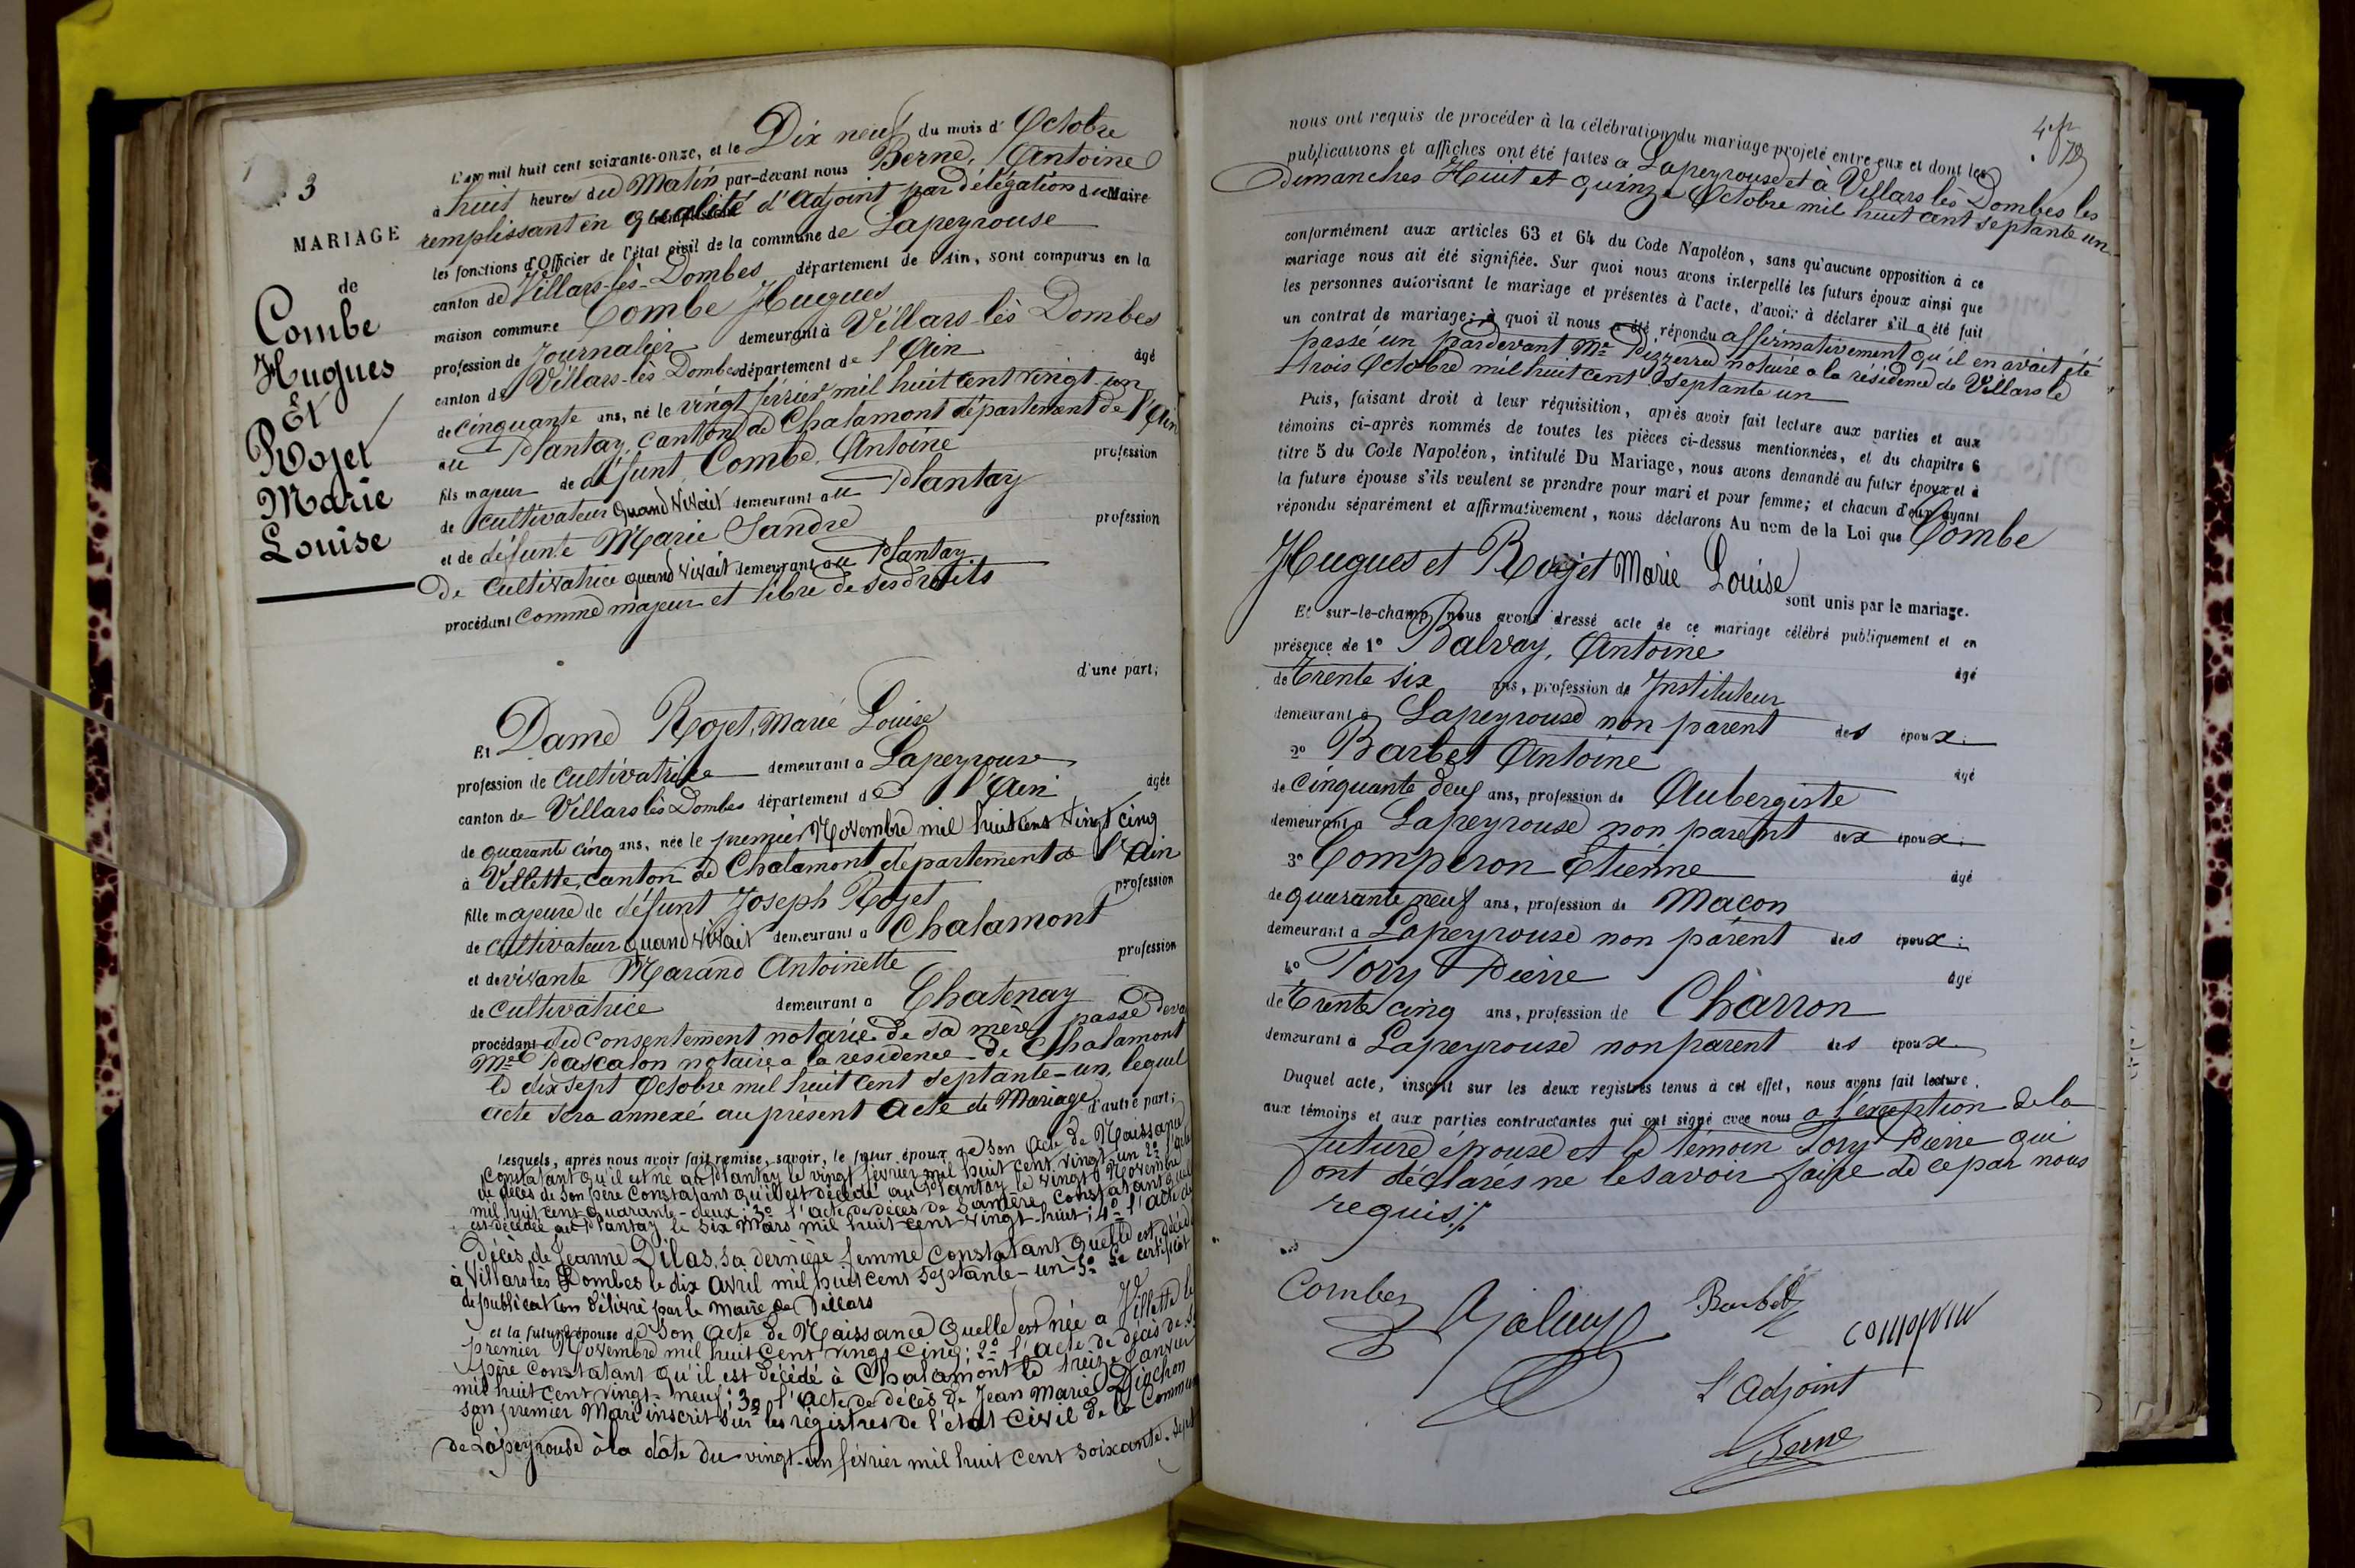 3
MARIAGE
de
Combe
Hugues
Et
Rojet
Marie
Louise
L'an mil huit cent soixante-onze, et le Dix neuf du mois d'Octobre
à huit heures du Matin par-devant nous Berne, Antoine
remplissant en qualité d'Adjoint par délégation du Maire
les fonctions d'Officier de l'état civil de la commune de Lapeyrouse
canton de Villars-lès-Dombes département de l'Ain, sont comparus en la
maison commune Combe Hugues
profession de Journalier demeurant à Villars-lès Dombes
canton de Villars-lès Dombes département de l'Ain âgé
de cinquante ans, né le vingt février mil huit cent vingt-un
au Plantay, canton de Chalamont département de l'Ain
fils majeur de défunt Combe, Antoine profession
de cultivateur quand vivait demeurant au Plantay
et de défunte Marie Sandre profession
De cultivatrice quand vivait demeurant au Plantay
procédant Comme majeur et libre de ses droits
d'une part;
Et Dame Rojet, Marie Louise
profession de cultivatrice demeurant à Lapeyrouse
canton de Villars lès Dombes département de l'Ain âgée
de quarante cinq ans, née le premier Novembre mil huit cent vingt cinq
à Villette, canton de Chalamont département de l'Ain
fille majeure de défunt Joseph Rojet profession
de cultivateur quand vivait demeurant à Chalamont
et de vivante Marand Antoinette profession
de cultivatrice demeurant à Chatenay
procédant du Consentement notarié de sa mère passé deva
Me Pascalon notaire a la résidence de Chalamont
le dix sept Octobre mil huit cent septante-un, lequel
acte sera annexé au présent Acte de Mariage d'autre part;
Lesquels, après nous avoir fait remise, savoir, le futur époux de son Acte de Naissance
Constatant qu'il est né au Plantay le vingt février mil huit cent vingt-un 2º l'acte
de décès de son père Constatant qu'il est décédé au Plantay le vingt Novembre
mil huit cent quarante-deux; 3º l'acte de décès de sa mère Constatant qu'elle
est décédée au Plantay le six Mars mil huit-cent-vingt-huit; 4º l'acte de
Décès de Jeanne Dilas, sa dernière femme constatant quelle est décédée
à Villars lès Dombes le dix avril mil huit cent septante-un 5º Le certificat
de publication délivré par le Maire de Villars
et la future épouse de Son Acte de Naissance quelle est née a Villette le
premier Novembre mil huit cent vingt cinq; 2º l'acte de décès de s
père Constatant qu'il est décédé à Chalamont le treize Janvier
mil huit cent vingt-neuf; 3º l'acte de décès de Jean Marie Diochon
son premier Mari inscrit sur les registres de l'etat civil de la Commune
de Lapeyrouse à la date du vingt-un février mil huit cent soixante-sept
nous ont requis de procéder à la célébration du mariage projeté entre eux et dont les
publications et affiches ont été faites à Lapeyrouse et à Villars lès Dombes les
dimanches Huit et quinze Octobre mil huit cent septante un
conformément aux articles 63 et 64 du Code Napoléon, sans qu'aucune opposition à ce
mariage nous ait été signifiée. Sur quoi nous avons interpellé les futurs époux ainsi que
les personnes autorisant le mariage et présentes à l'acte, d'avoir à déclarer s'il a été fait
un contrat de mariage; à quoi il nous a été répondu affirmativement qu'il en avait été
passé un pardevant Me notaire a la résidence de Villars le
trois Octobre mil huit cent septante un
Puis, faisant droit à leur réquisition, après avoir fait lecture aux parties et aux
témoins ci-après nommés de toutes les pièces ci-dessus mentionnées, et du chapitre 6
titre 5 du Code Napoléon, intitulé Du Mariage, nous avons demandé au futur époux et à
la future épouse s'ils veulent se prendre pour mari et pour femme; et chacun d'eux ayant
répondu séparément et affirmativement, nous déclarons Au nom de la Loi que Combe
Hugues et Rojet Marie Louise
sont unis par le mariage.
Et sur-le-champ nous avons dressé acte de ce mariage célébré publiquement et en
présence de 1º Balvay, Antoine âgé
de trente six ans, profession de Instituteur
demeurant à Lapeyrouse non parent des époux;
2º Barbet Antoine âgé
de cinquante deux ans, profession de Aubergiste
demeurant à Lapeyrouse non parent des époux;
3º Comperon Etienne âgé
de quarante neuf ans, profession de Macon
demeurant à Lapeyrouse non parent des époux;
4º Tory Pierre âgé
de trente cinq ans, profession de Charron
demeurant à Lapeyrouse non parent des époux
Duquel acte, inscrit sur les deux registres tenus à cet effet, nous avons fait lecture
aux témoins et aux parties contractantes qui ont signé avec nous a l'exception de la
future épouse et le temoin Tory Pierre qui
ont déclarés ne le savoir faire de ce par nous
requis
Combe
Barbet
L'Adjoint
Berne